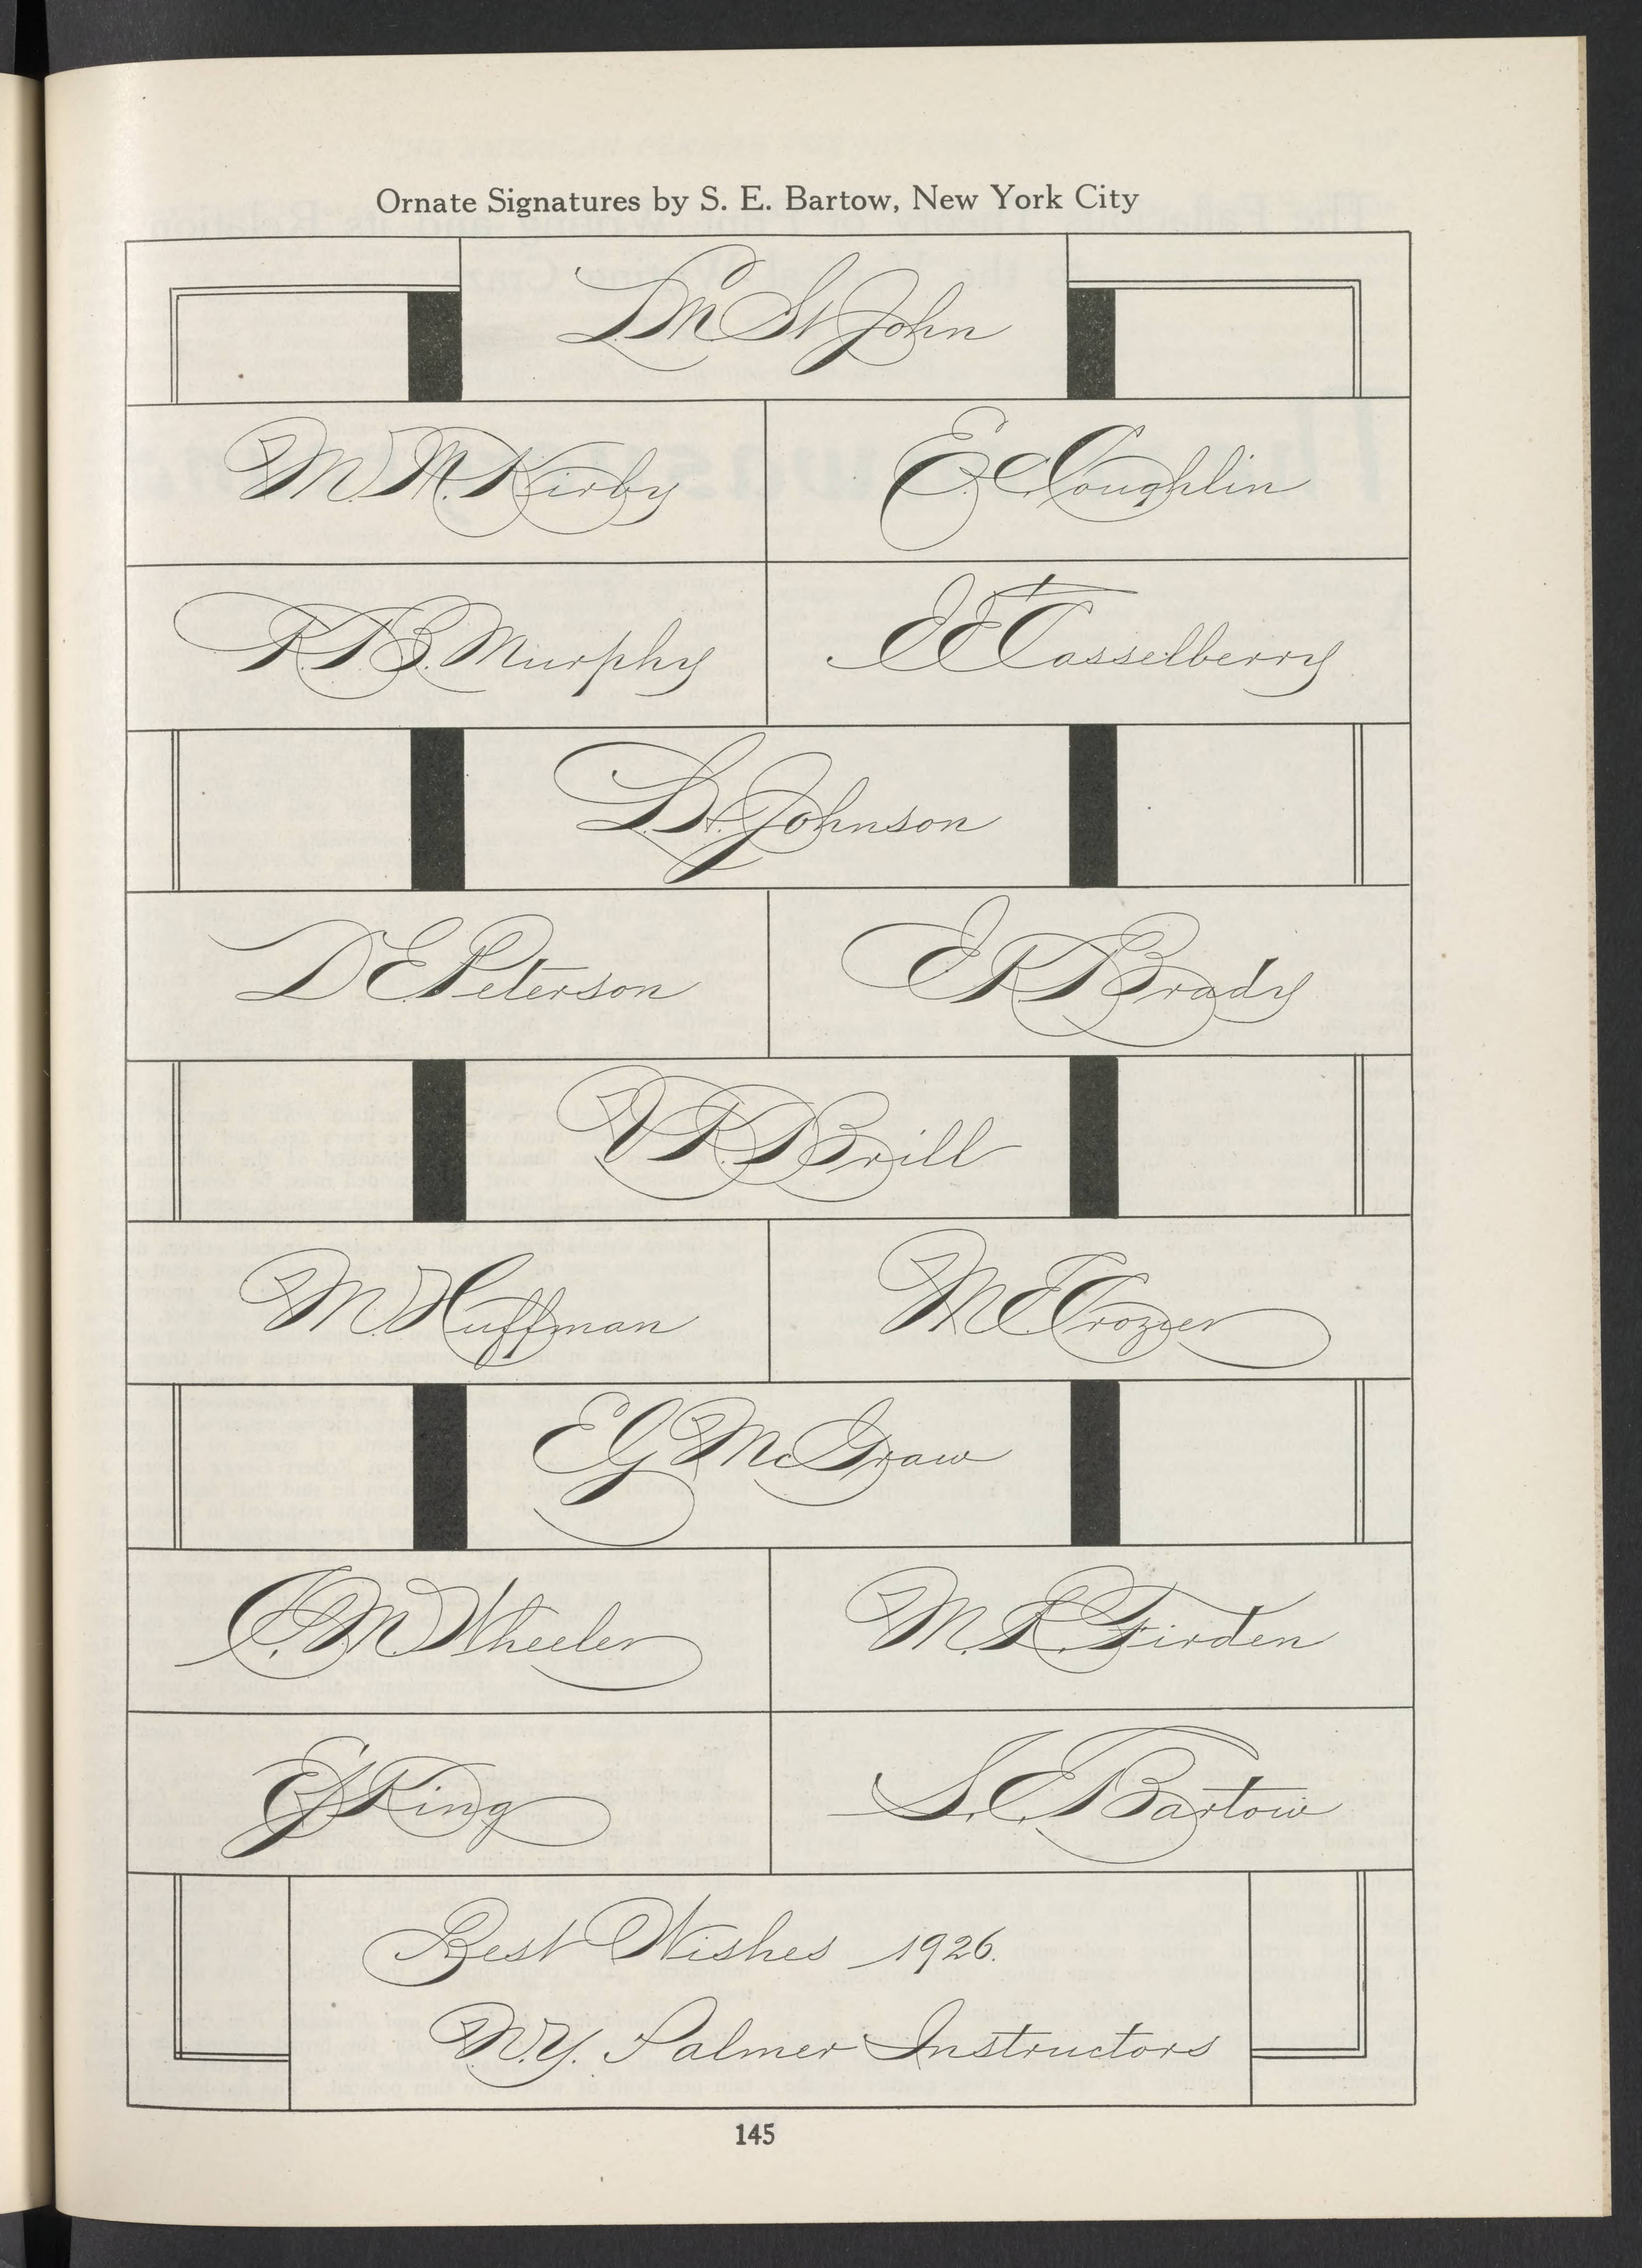 Ornate Signatures by S. E. Bartow, New York City
L M St John
M. N. Kirby
E. C. Coughlin
R. B. Murphy
J E Casselberry
L. H. Johnson
D E Peterson
E R Brady
V R Brill
M. Huffman
M E Crozier
E G McGraw
C. M. Wheeler
M. R. Firden
E J King
S. E. Bartow
Best Wishes 1926.
N.Y. Palmer Instructors
145